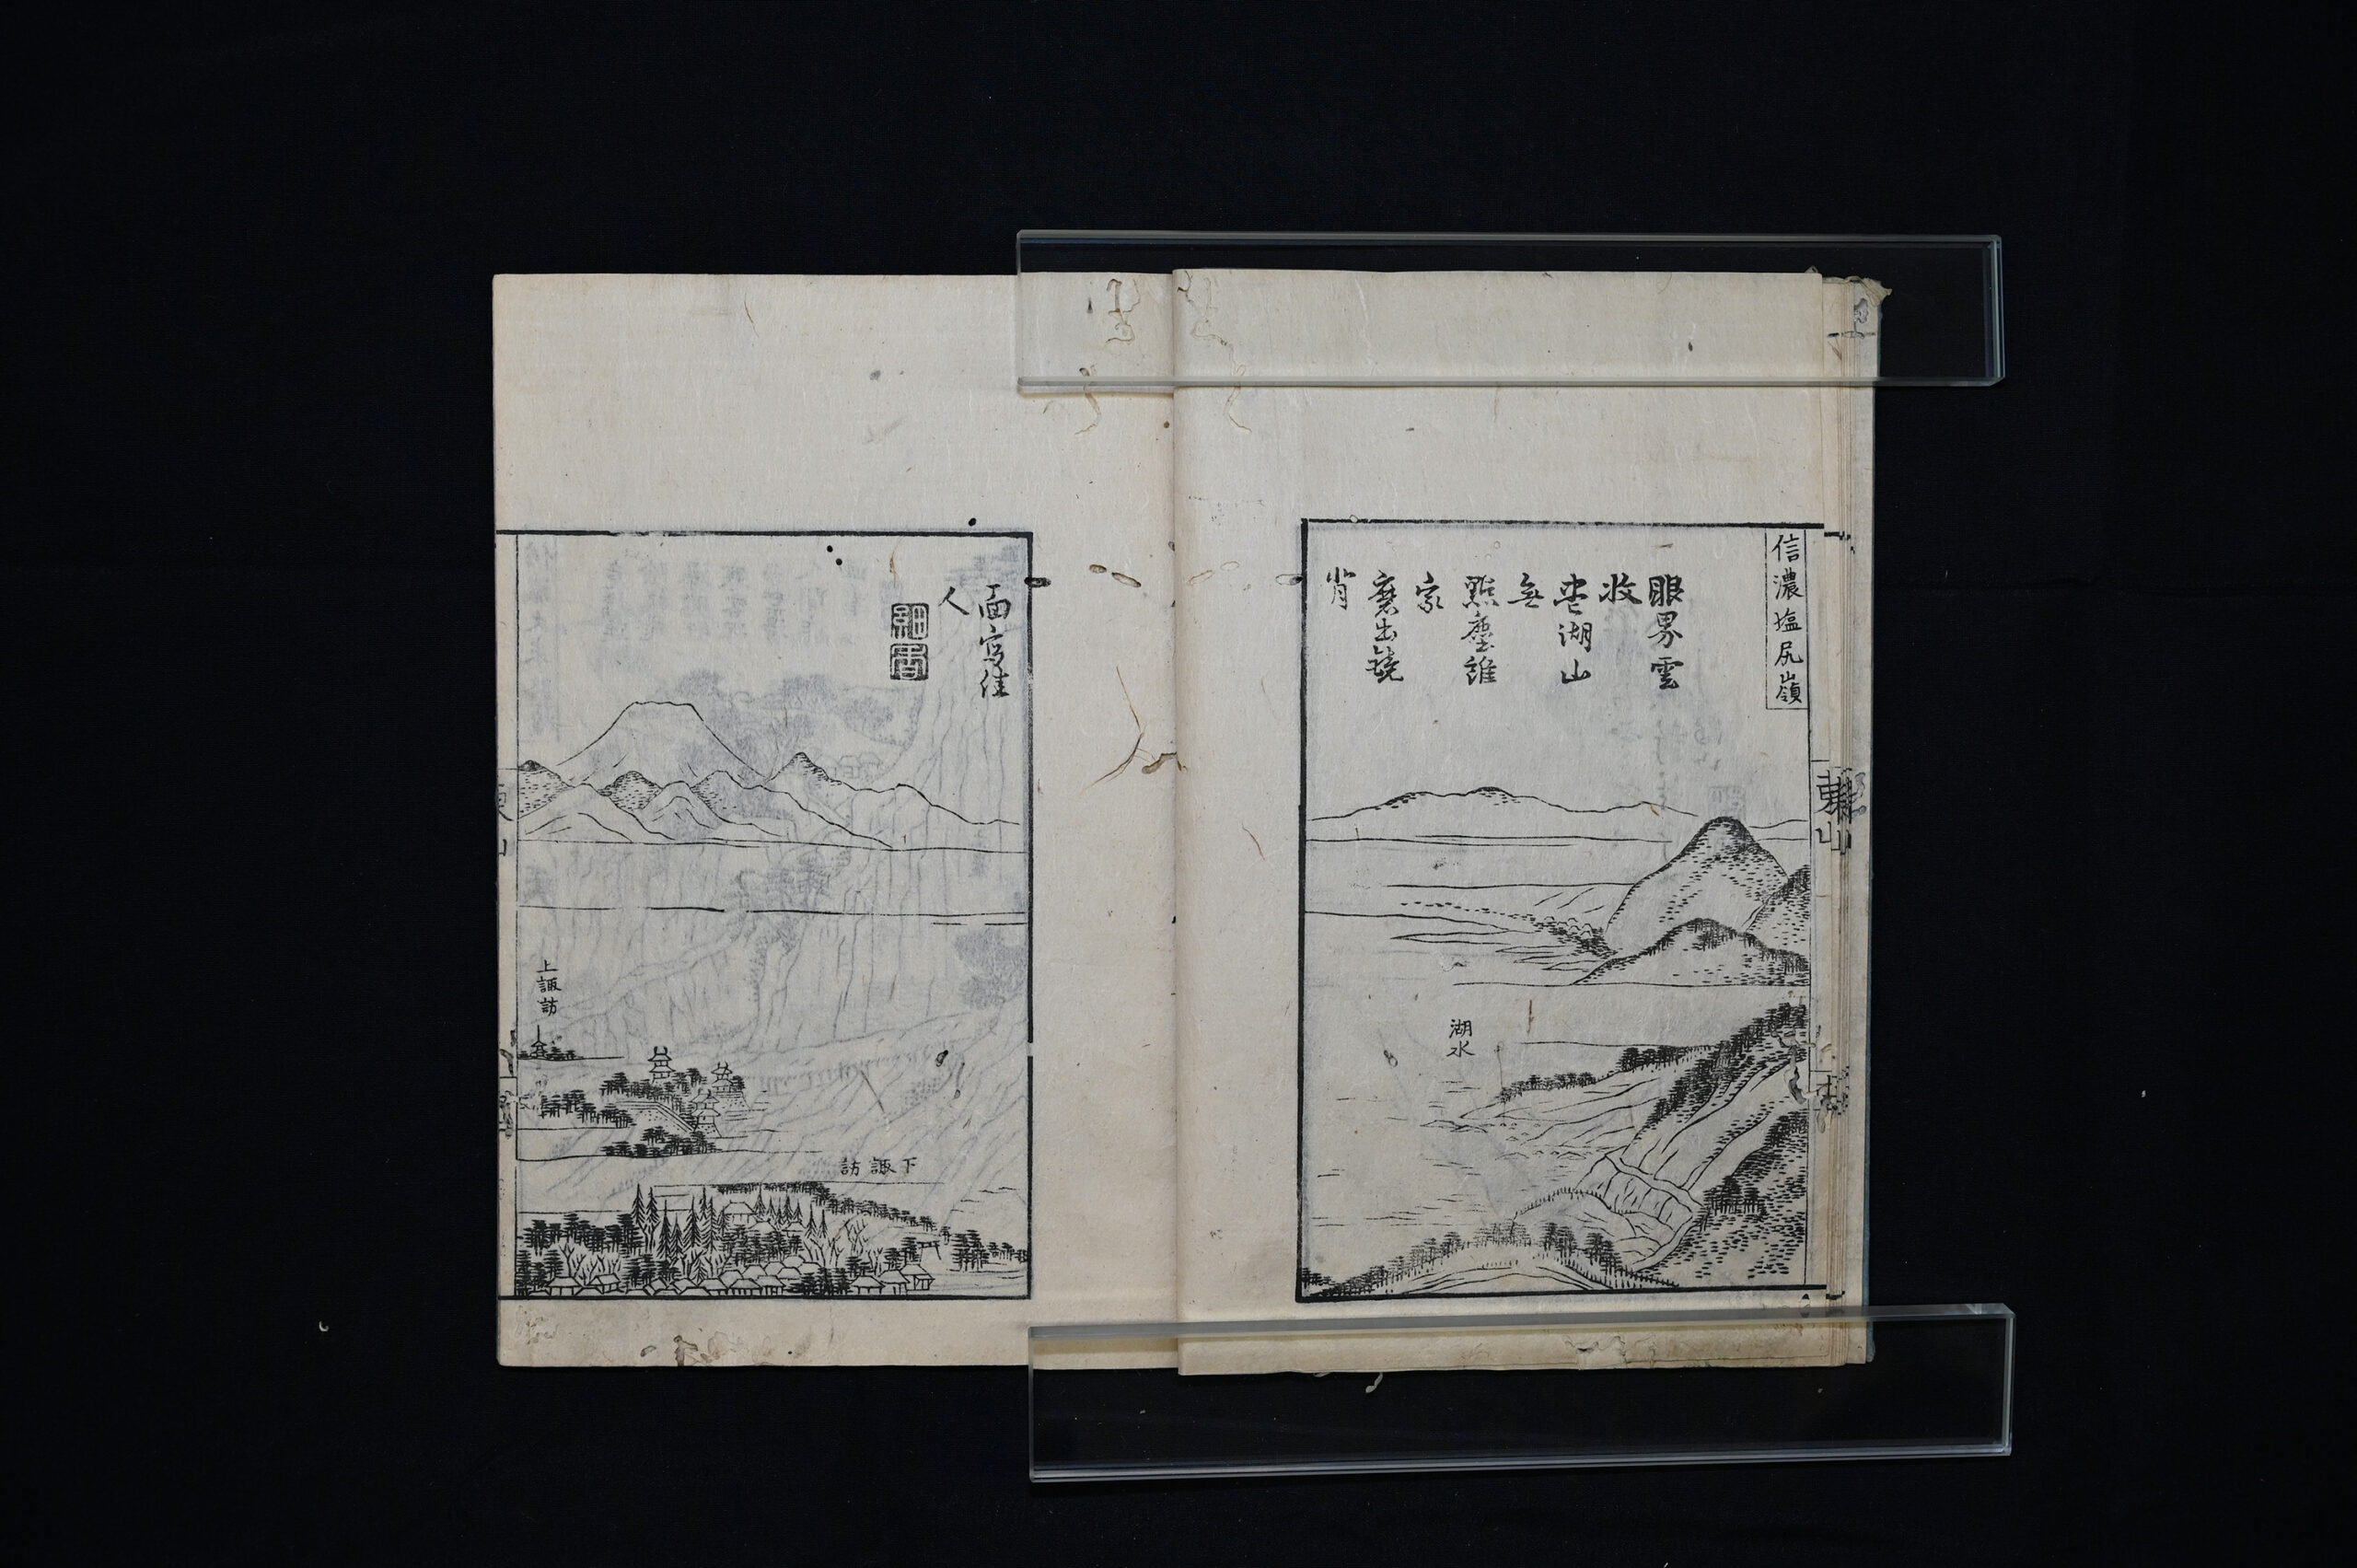 信濃塩尻嶺
眼界雲
收
盡湖山
無
點塵誰
家
磨出鏡
背
湖水
東山
面寫佳
人
細香
上諏訪
下諏訪